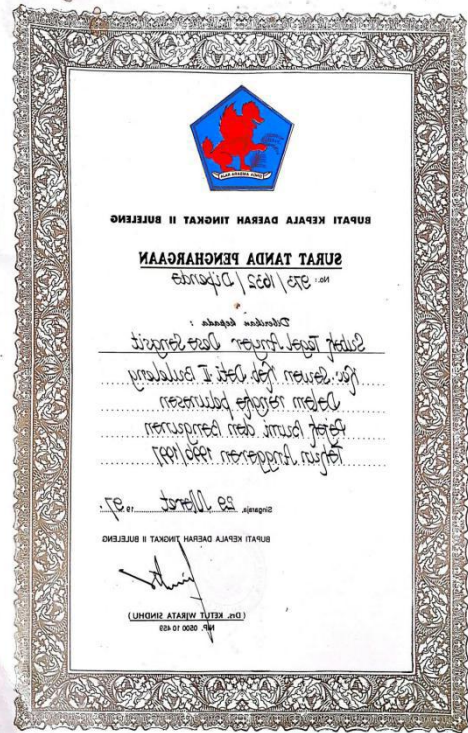 SINGA AMBARA RAJA
BUPATI KEPALA DAERAH TINGKAT II BULELENG
SURAT TANDA PENGHARGAAN
No: 973/1632/Dipenda
Diberikan kepada :
Subak Tegal Anyar Desa Sangsit
Kec. Sawan Kab Dati II Buleleng
Dalam rangka pelunasan
Pajak bumi dan Bangunan
Tahun Anggaran 1996/1997
Singaraja, 29 Maret 19 97.
BUPATI KEPALA DAERAH TINGKAT II BULELENG
( Drs. KETUT WIRATA SINDHU )
NIP. 0500 10 459